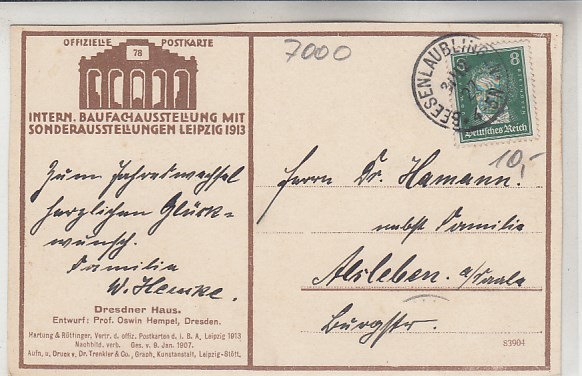 OFFIZIELLE POSTKARTE
78
INTERN. BAUFACHAUSSTELLUNG MIT
SONDERAUSSTELLUNGEN LEIPZIG 1913
7000
BEESENLAUBLINGEN
8 8
Deutsches Reich
10,-
Zum Jahreswechsel
herzlichen Glück-
wunsch.
Familie
W. Hemke.
Herrn Dr. Hamann.
nebst Familie
Alsleben. a/Saale
Burgstr.
Dresdner Haus.
Entwurf: Prof. Oswin Hempel, Dresden.
Hartung & Rüttinger, Vertr. d. offiz. Postkarten d. I. B. A., Leipzig 1913
Nachbild. verb. Ges. v. 9. Jan. 1907.
Aufn. u. Druck v. Dr. Trenkler & Co., Graph. Kunstanstalt, Leipzig-Stött.
83904